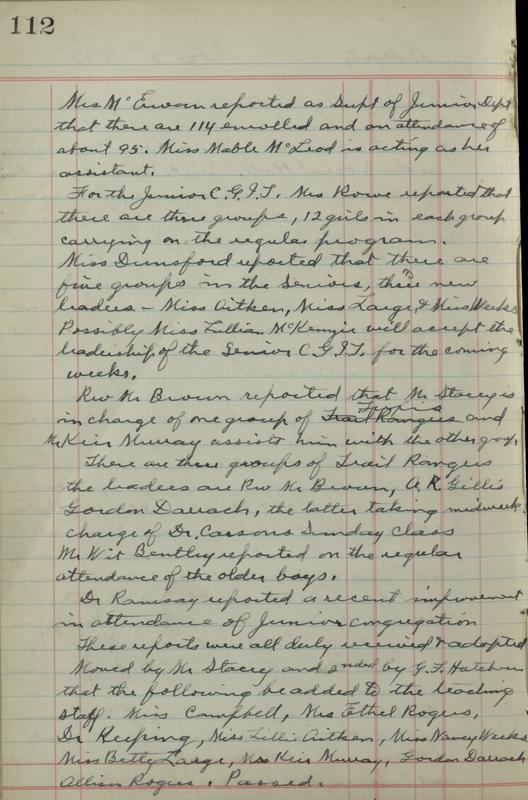 112
Mrs McEwan reported as Supt of Junior Dept
that there are 114 enrolled and an attendance of
about 95. Miss Mable McLeod is acting as her
assistant.
For the Junior C.G.I.T. Mrs Rowe reported that
there are three groups, 12 girls in each group
carrying on the regular program.
Miss Dunsford reported that there are
five groups in the Seniors, three new
leaders - Miss Aitken, Miss Large, & Miss Weeks
Possibly Miss Lillian McKenzie will accept the
leadership of the Senior C.G.I.T. for the coming
weeks.
Rev Mr Brown reported that Mr Stacey is
in charge of one group of Trail Rangers and
Mr Keir Murray assists him with the other group.
There are three groups of Trail Rangers
the leaders are Rev Mr Brown, A.R. Gillis
Gordon Darrach, the latter taking midweek
charge of Dr. Carsons Sunday Class
Mr Wit Bentley reported on the regular
attendance of the older boys.
Dr Ramsay reported a recent improvement
in attendance of Junior congregation
These reports were all duly received & adopted
Moved by Mr Stacey and 2nded by G.F. Hutcheson
that the following be added to the teaching
staff. Miss Campbell, Mrs Ethel Rogers,
Dr Keeping, Miss Lillis Aitken, Miss Nancy Weeks
Miss Betty Large, Mr Keir Murray, Gordon Darrach
Allison Rogers. Passed.